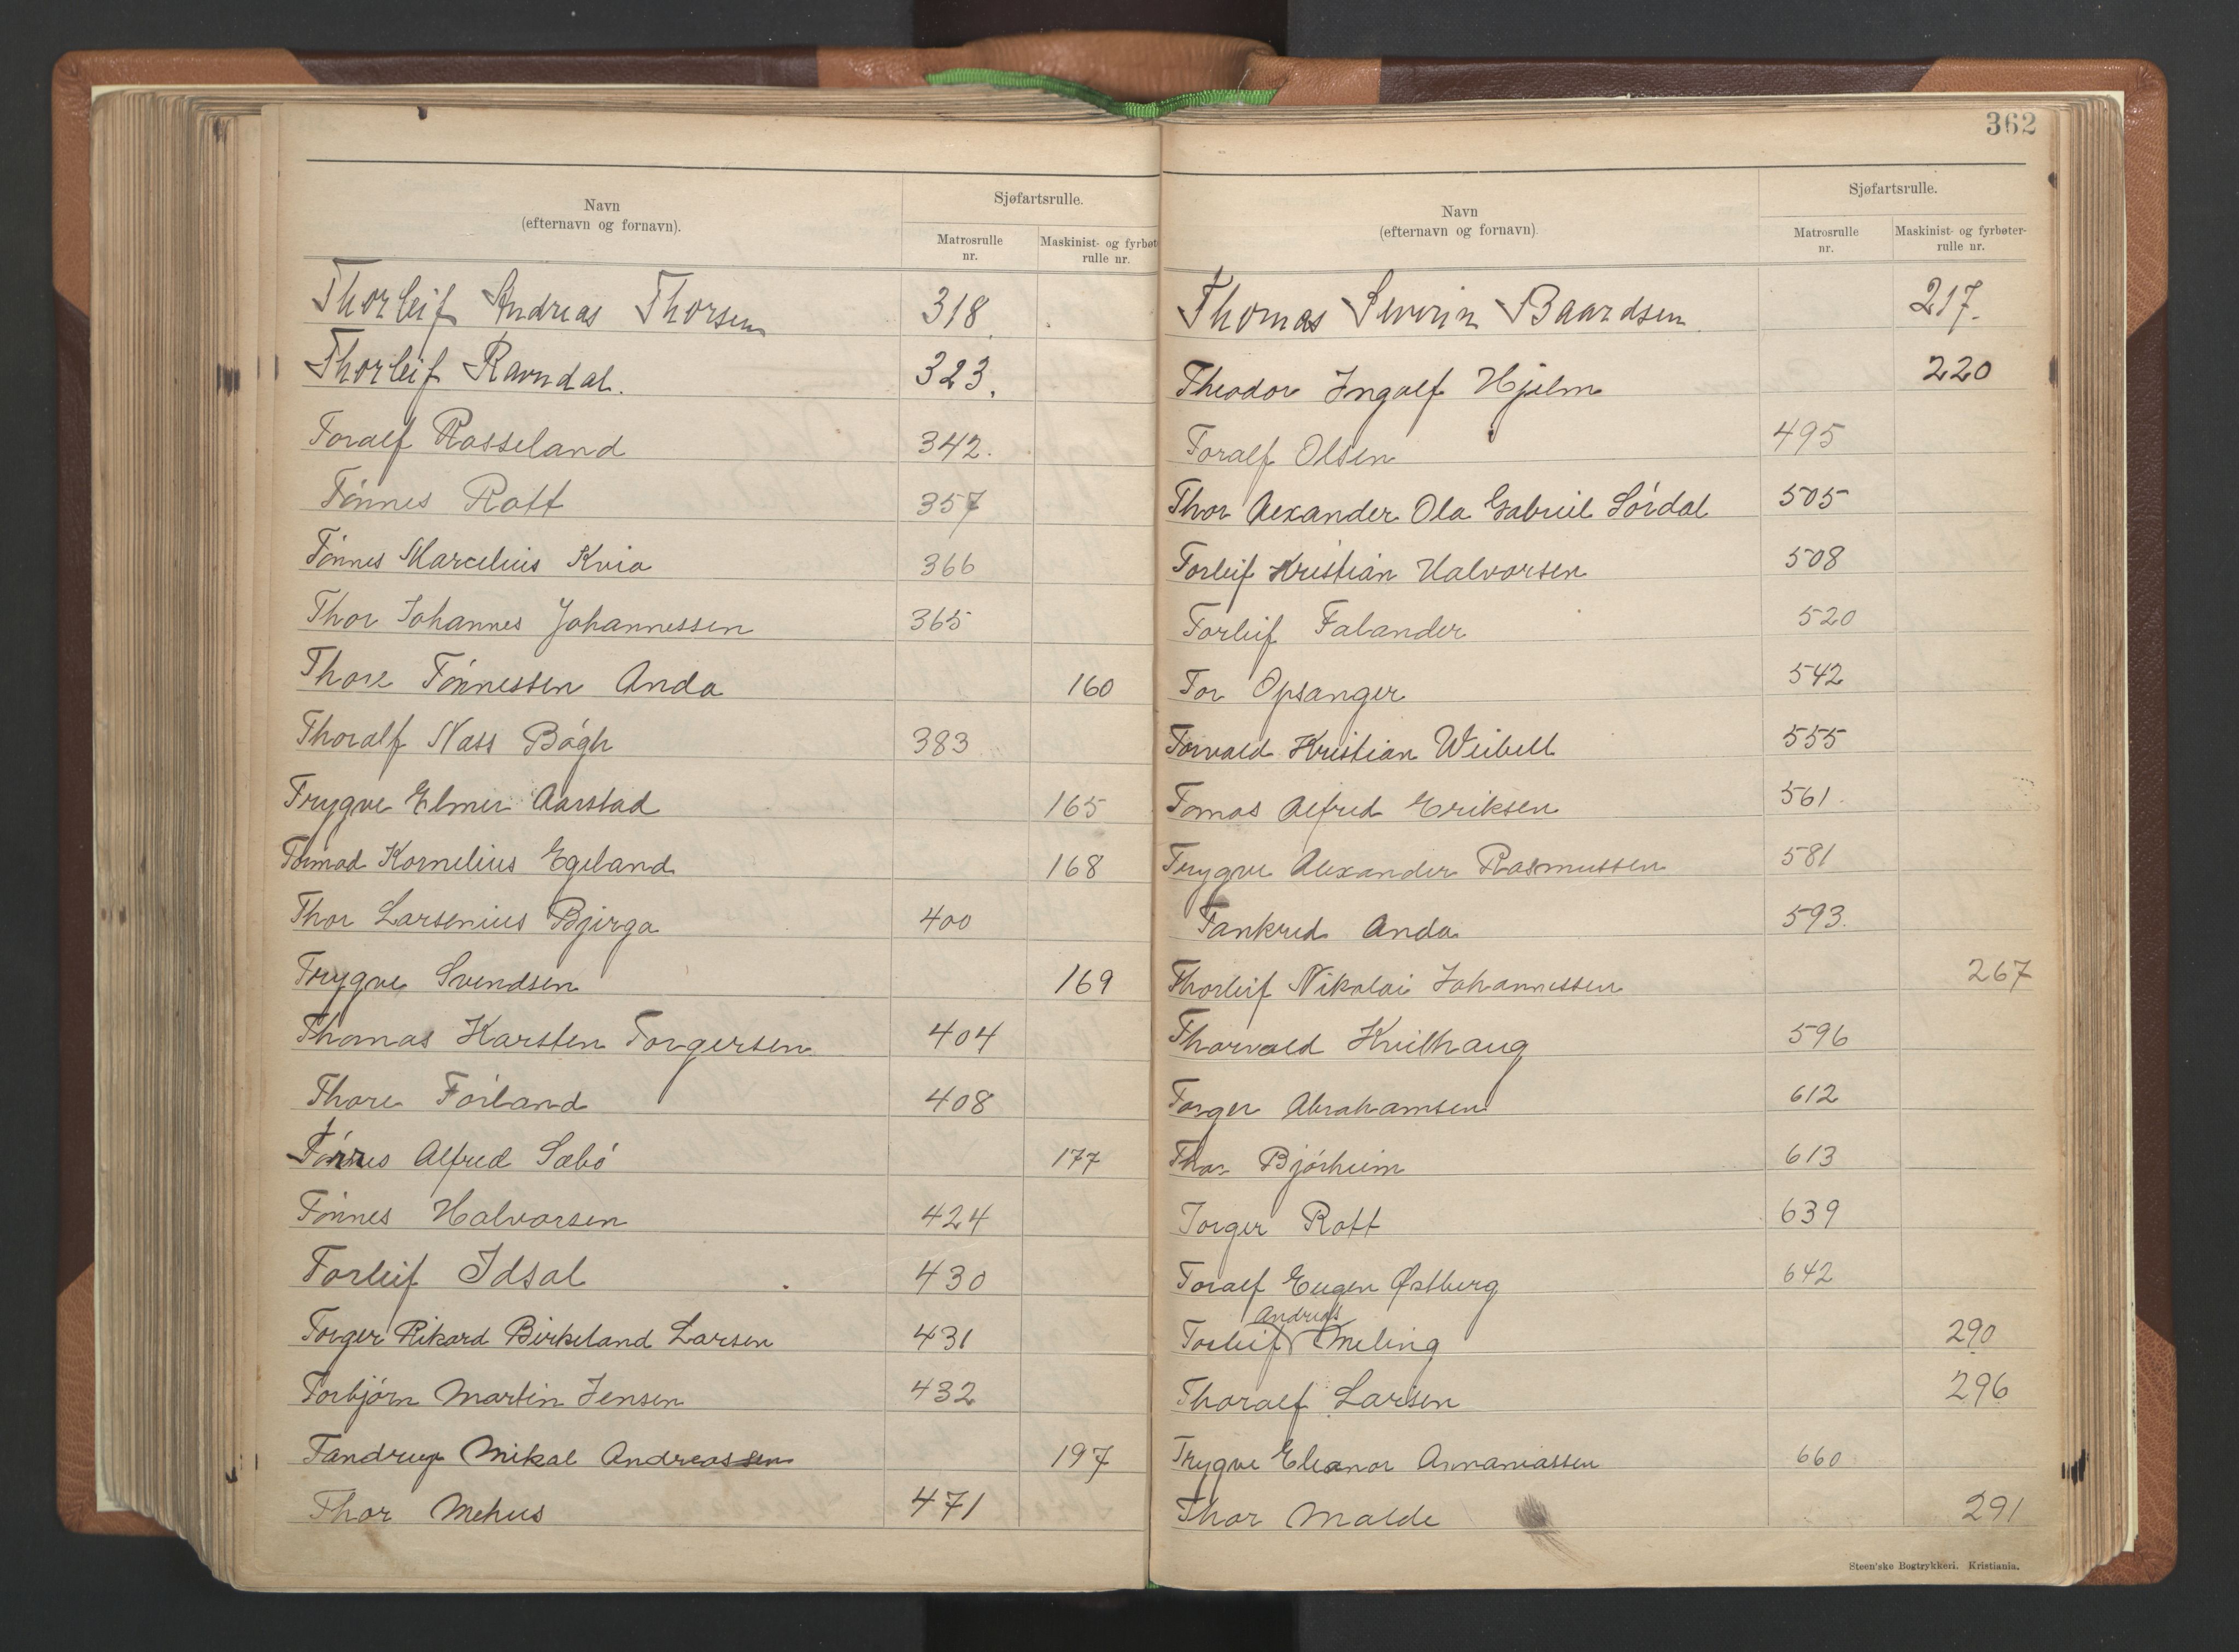 Navn
(efternavn og fornavn).
Sjøfartsrulle.
Matrosrulle nr.
Maskinist- og fyrbøt rulle nr.
Thorleif Andreas Thorsen 318.
Thorleif Ravndal. 323.
Toralf Rosseland 342.
Tönnes Rott 357
Tönnes Marcelius Kvia 366
Thor Johannes Johannessen 365
Thore Tönnessen Anda 160
Thoralf Nass Bögh 383
Trygve Elmer Aarstad 165
Tormod Kornelius Egeland 168
Thor Larsenius Bjerga 400
Trygve Svendsen 169
Thomas Karsten Torgersen 404
Thore Förland 408
Törres Alfred Sæbö 177
Tönnes Halvorsen 424
Torleif Idsal 430
Torger Rikard Birkeland Larsen 431
Torbjörn Martin Jensen 432
Tandrup Mikal Andreassen 197
Thor Mehus 471
362
Navn
(efternavn og fornavn)
Sjøfartsrulle.
Matrosrulle nr.
Maskinist- og fyrbøter- rulle nr.
Thomas Severin Baardsen. 217.
Theodor Ingolf Hjelm 220
Toralf Olsen 495
Thor Alexander Ola Gabriel Sördal 505
Torleif Kristian Halvorsen 508
Torleif Falander 520
Tor Opsanger 542
Torvald Kristian Weibell 555
Tomas Alfred Eriksen 561.
Trygve Alexander Rasmussen 581
Tankred Anda 593.
Thorleif Nikolai Johannessen 267
Thorvald Kvilhaug 596
Torger Abrahamsen 612
Thor Björheim 613
Torger Rott 639
Toralf Eugen Østberg 642
Andreas
Torleif Meling 290
Thoralf Larsen 296
Trygve Eleanor Annaniassen 660
Thor Malde 291
Steen'ske Bogtrykkeri. Kristiania.